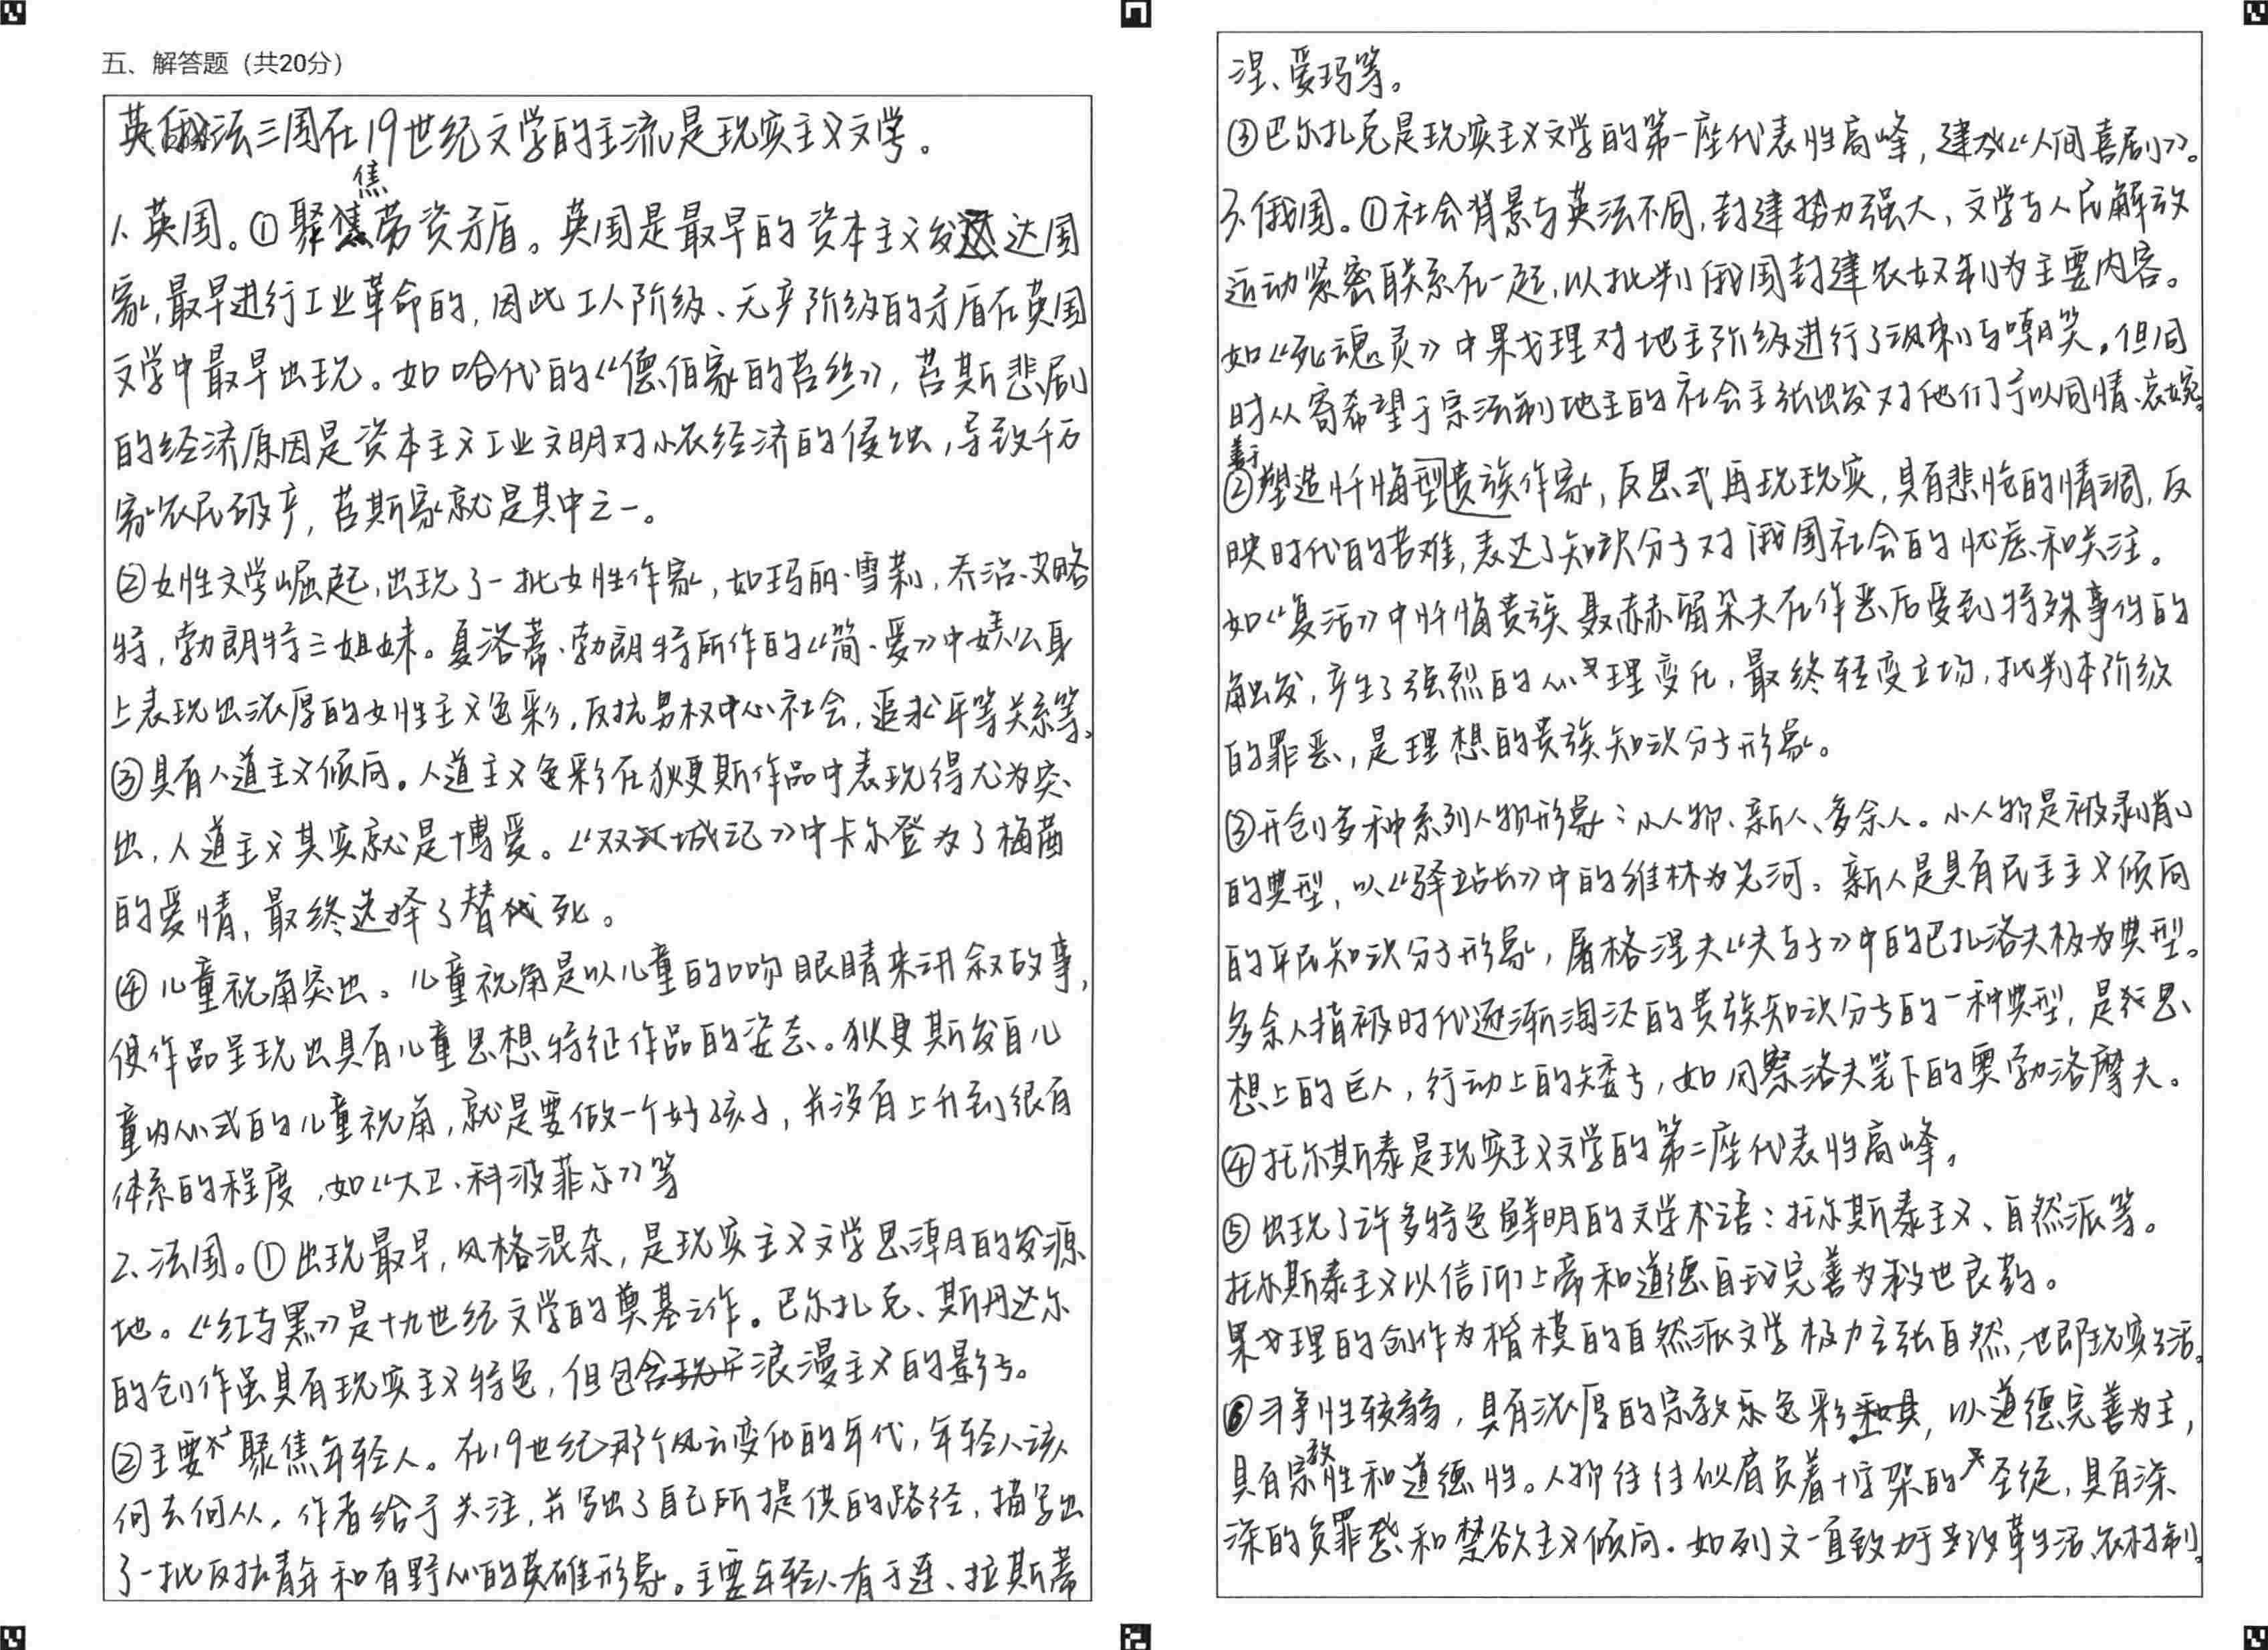 五、解答题（共20分）
英俄法三国在19世纪文学的主流是现实主义文学。
1、英国。①聚焦劳资矛盾。英国是最早的资本主义发达国
家,最早进行工业革命的,因此工人阶级、无产阶级的矛盾在英国
文学中最早出现。如哈代的《德伯家的苔丝》,苔斯悲剧
的经济原因是资本主义工业文明对小农经济的侵蚀,导致千万
家农民破产,苔斯家就是其中之一。
②女性文学崛起,出现了一批女性作家,如玛丽·雪莉,乔治·艾略
特,勃朗特三姐妹。夏洛蒂·勃朗特所作的《简·爱》中女主公身
上表现出浓厚的女性主义色彩,反抗男权中心社会,追求平等关系等。
③具有人道主义倾向。人道主义色彩在狄更斯作品中表现得尤为突
出,人道主义其实就是博爱。《双城记》中卡尔登为了梅茜
的爱情,最终选择了替代死。
④儿童视角突出。儿童视角是以儿童的口吻眼睛来讲叙故事,
使作品呈现出具有儿童思想特征作品的姿态。狄更斯发自儿
童内心式的儿童视角,就是要做一个好孩子,并没有上升到很有
体系的程度,如《大卫·科波菲尔》等
2、法国。①出现最早,风格混杂,是现实主义文学思潮的发源
地。《红与黑》是十九世纪文学的奠基之作。巴尔扎克、斯丹达尔
的创作虽具有现实主义特色,但包含浪漫主义的影子。
②主要聚焦年轻人。在19世纪那个风云变化的年代,年轻人该
何去何从,作者给予关注,并写出了自己所提供的路径,描写出
了一批反抗青年和有野心的英雄形象。主要年轻人有于连、拉斯蒂
涅、爱玛等。
③巴尔扎克是现实主义文学的第一座代表性高峰,建成《人间喜剧》。
3、俄国。①社会背景与英法不同,封建势力强大,文学与人民解放
运动紧密联系在一起,以批判俄国封建农奴制为主要内容。
如《死魂灵》中果戈理对地主阶级进行了讽刺与嘲笑,但同
时从寄希望于宗法制地主的社会主张出发对他们予以同情、哀婉。
②善于塑造忏悔型贵族作家,反思式再现现实,具有悲怆的情调,反
映时代的苦难,表达了知识分子对俄国社会的忧虑和关注。
如《复活》中忏悔贵族聂赫留朵夫在作恶后受到特殊事件的
触发,产生了强烈的心理变化,最终转变立场,批判本阶级
的罪恶,是理想的贵族知识分子形象。
③开创多种系列人物形象:小人物、新人、多余人。小人物是被剥削
的典型,以《驿站长》中的维林为先河。新人是具有民主主义倾向
的平民知识分子形象,屠格涅夫《父与子》中的巴扎洛夫极为典型。
多余人指被时代逐渐淘汰的贵族知识分子的一种典型,是思
想上的巨人,行动上的矮子,如冈察洛夫笔下的奥勃洛摩夫。
④托尔斯泰是现实主义文学的第二座代表性高峰。
⑤出现了许多特色鲜明的文学术语:托尔斯泰主义、自然派等。
托尔斯泰主义以信仰上帝和道德自我完善为救世良药。
果戈理的创作为楷模的自然派文学极力主张自然,也即现实生活。
⑥斗争性较弱,具有浓厚的宗教色彩,以道德完善为主,
具有宗教性和道德性。人物往往似肩负着十字架的圣徒,具有深
深的负罪感和禁欲主义倾向。如列文一直致力于改革生活、农村制